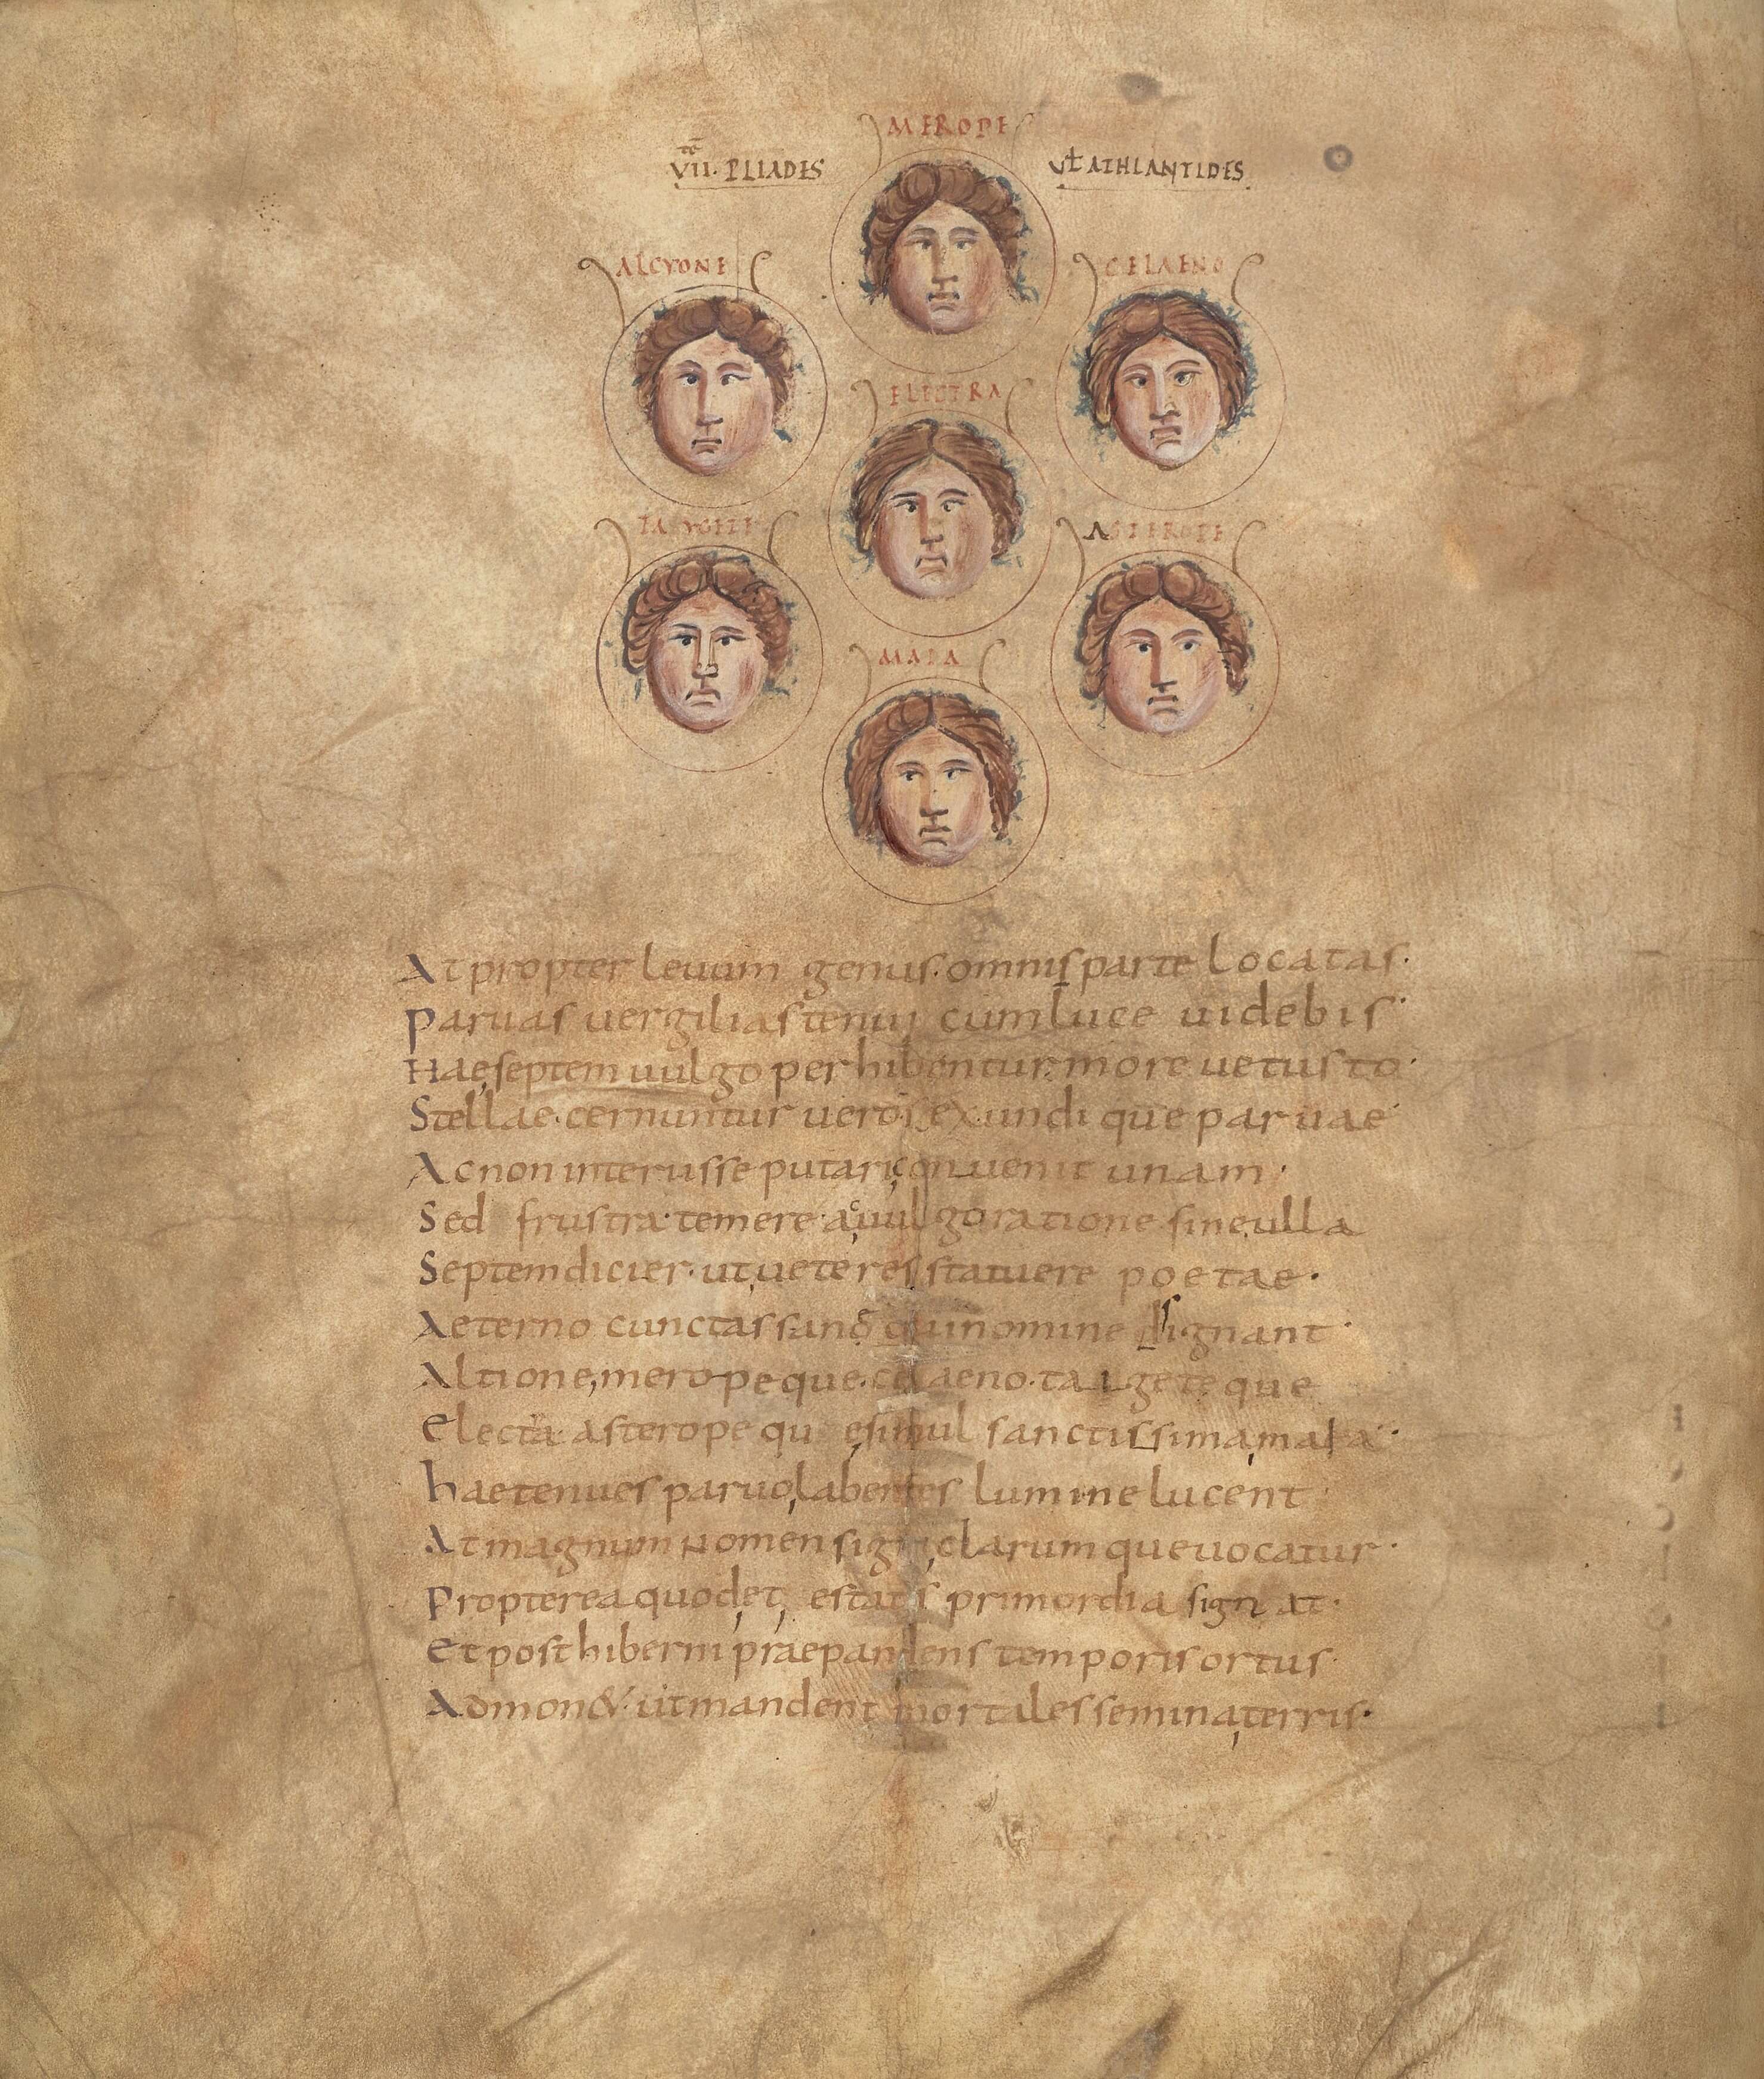 MEROPE
VII. PLIADES
ut ATHLANTIDES
ALCYONE
CELAENO
ELECTRA
ASTEROPE
MAIA
At propter leuum genus. omnis parte Locatas.
Paruas uergilias tenui cum luce uidebis
Hae septem uulgo perhibentur more uetusto.
Stellae. cernuntur uero sex undique paruae
Ac non interiisse putari conuenit unam.
Sed frustra. temere a uulgo ratione sine ulla
Septem dicier. ut ueteres statuere poetae.
Aeterno cunctas nomine dignant.
Altione, meropeque. celaeno. taugeteque
Electa. asteropeque simul sanctissima maia.
hae tenues paruo labentes lumine lucent
At magnum nomen signi clarumque uocatur.
Propterea quod et estatis primordia signat.
Et post hiberni praepandens temporis ortus.
Admon& ut mandent mortales semina terris.